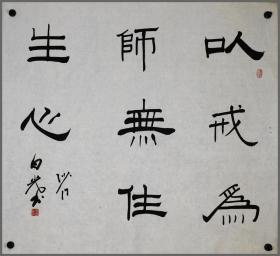 以戒為
師無住
生心